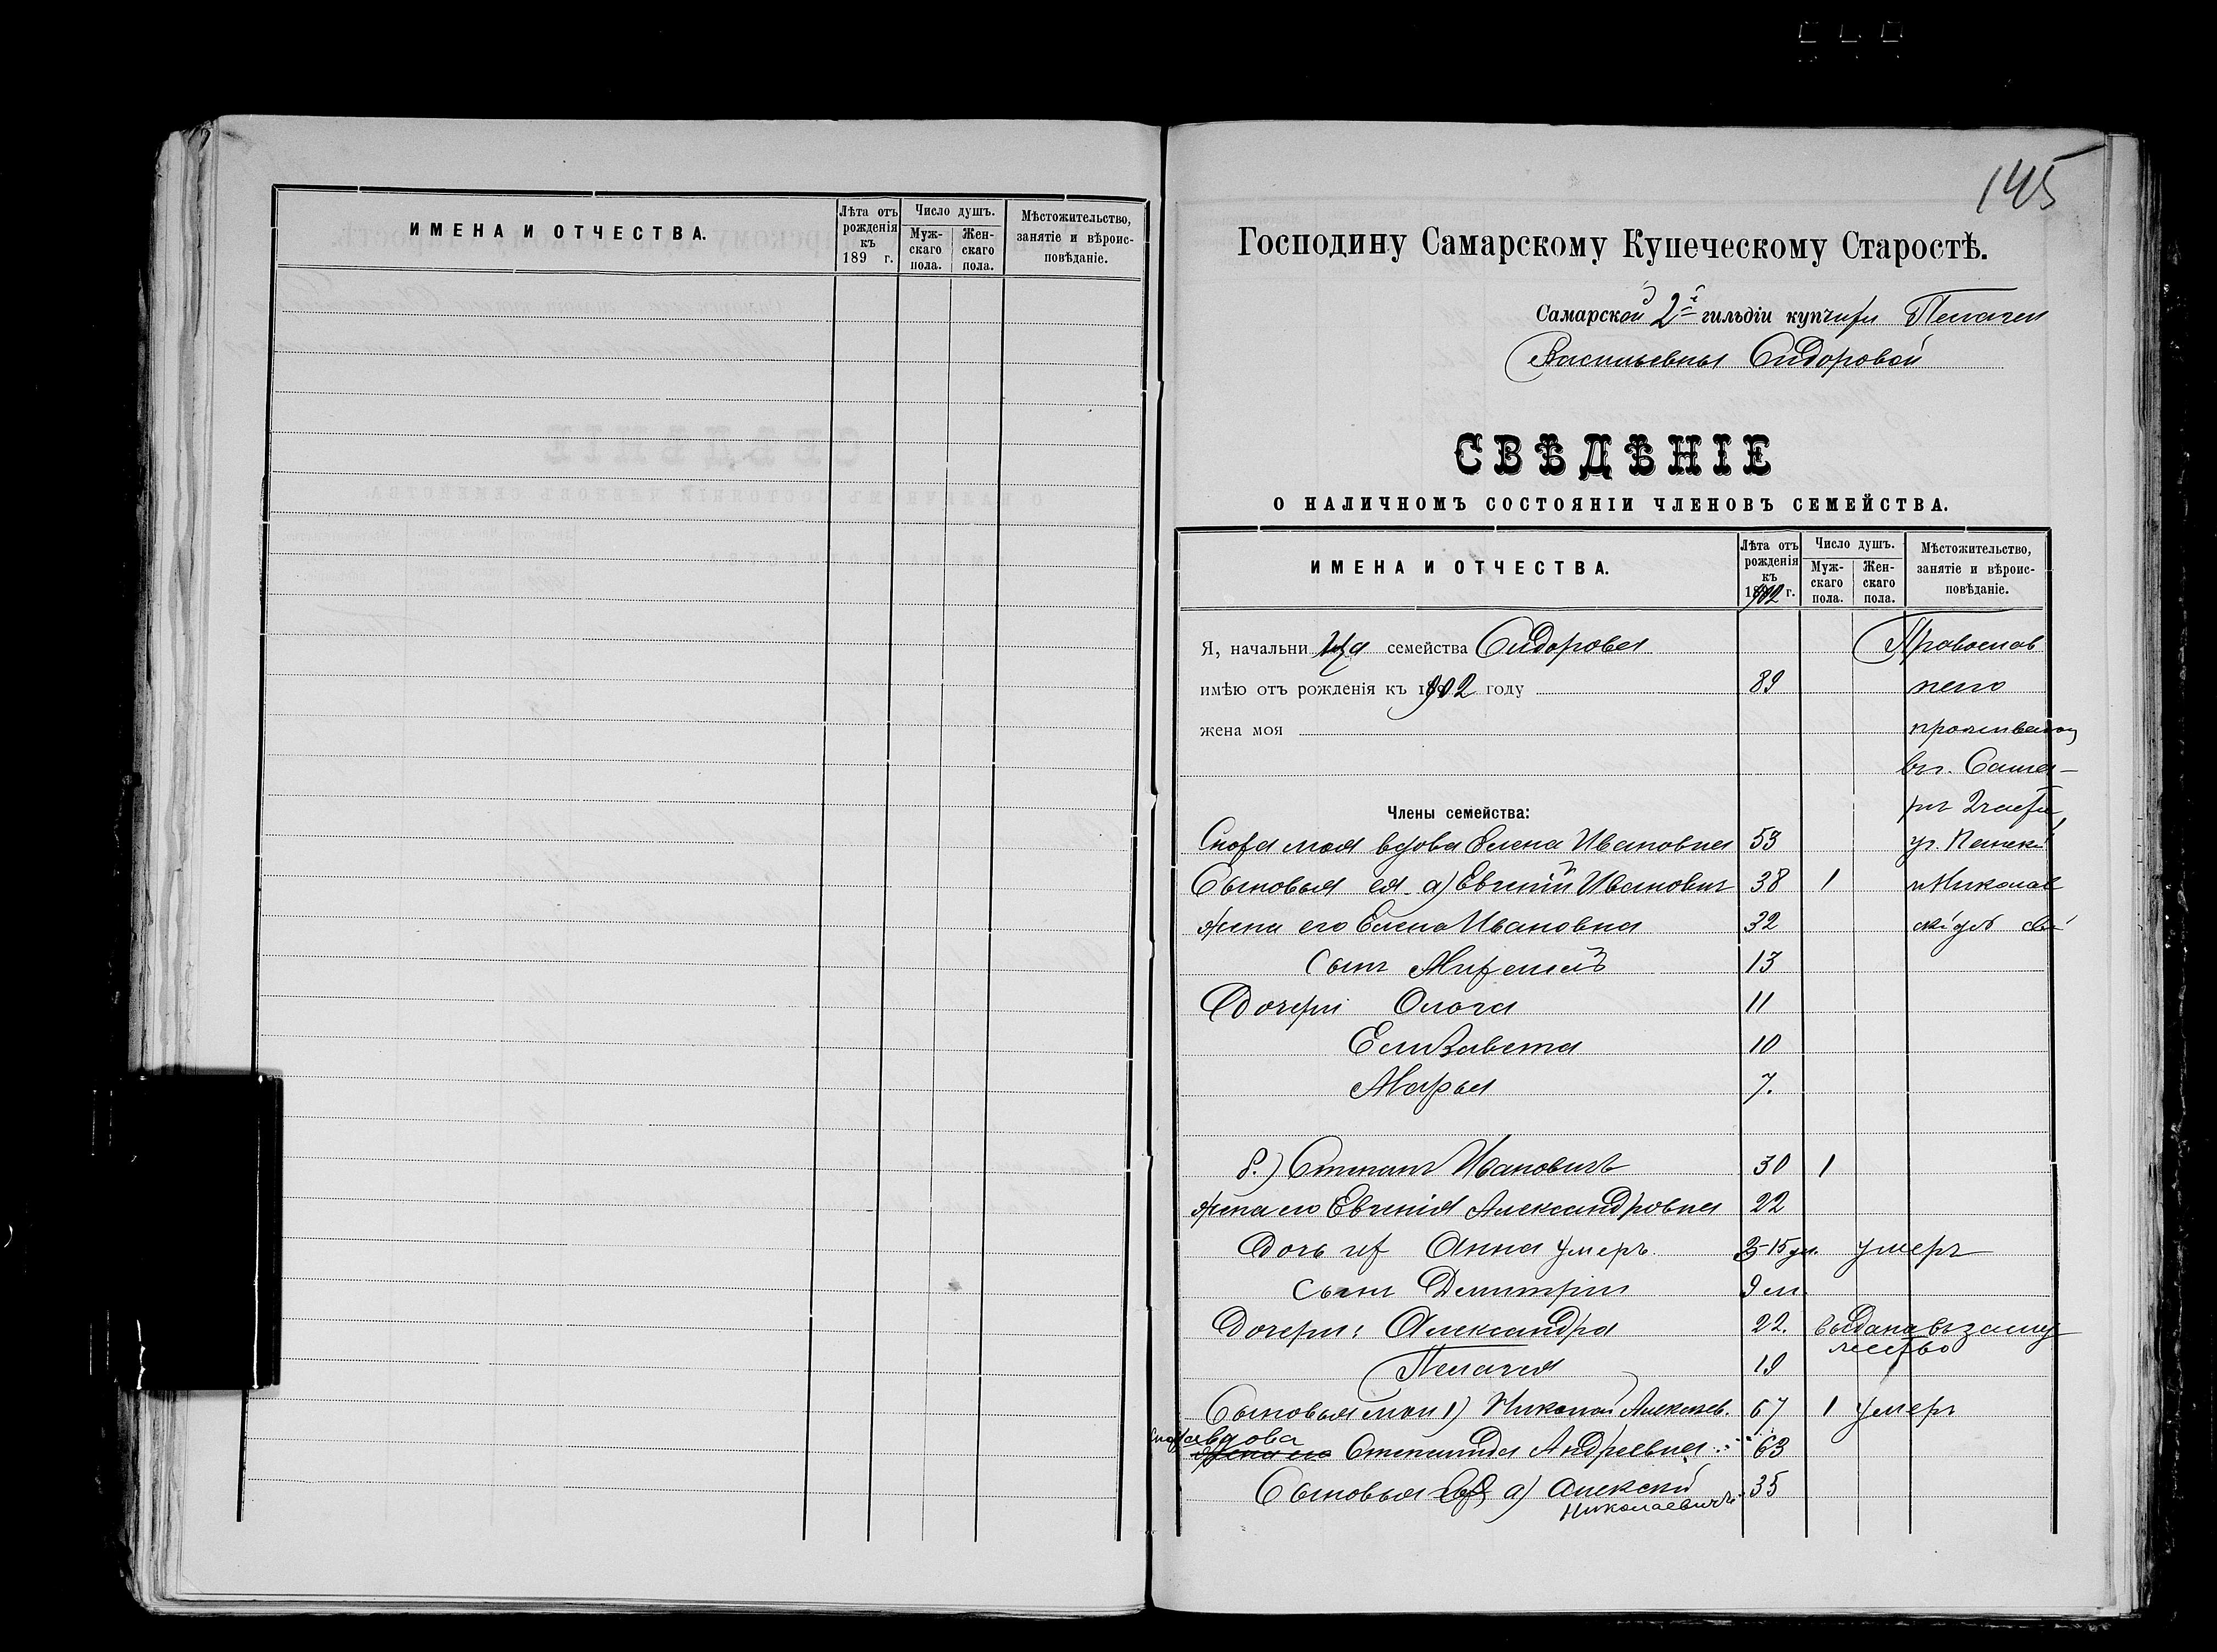 ИМЕНА И ОТЧЕСТВА.
Лѣта отъ рожденія къ 189 г.
Число душъ.
Мужскаго пола.
Женскаго пола.
Мѣстожительство, занятіе и вѣроисповѣданіе.
145
Господину Самарскому Купеческому Старостѣ.
Самарской 2й гильдіи купчихи Пелагеи
Васильевны Сидоровой
СВѢДѢНІЕ
О НАЛИЧНОМЪ СОСТОЯНІИ ЧЛЕНОВЪ СЕМЕЙСТВА.
ИМЕНА И ОТЧЕСТВА.
Лѣта отъ рожденія къ 1902 г.
Число душъ.
Мужскаго пола.
Женскаго пола.
Мѣстожительство, занятіе и вѣроисповѣданіе.
Я, начальница семейства Сидорова Православ
имѣю отъ рожденія къ 1902 году 89
жена моя
въ г. Сама-
рѣ 2 части
Члены семейства:
Сноха моя вдова Елена Ивановна 53
Сыновья ея а) Евгеній Иванович 38 1 Николаев
жена его Елена Ивановна 32
Сынъ 13
Дочери Ольга 11
Елизавета 10
Марья 7.
б.) Степанъ Ивановичъ 30 1
жена его Евгенія Александровна 22
Дочь их Анна умеръ. умеръ
сынъ Димитрий 9 м.
Дочери: Александра 22. выдана въ замужество
Пелагея 19
Сыновья мои 1) Николай Алексеев. 67 1 умеръ
Сноха вдова
жена его Степанида Андреевна 63
Сыновья а) Алексей 35
Николаевичъ